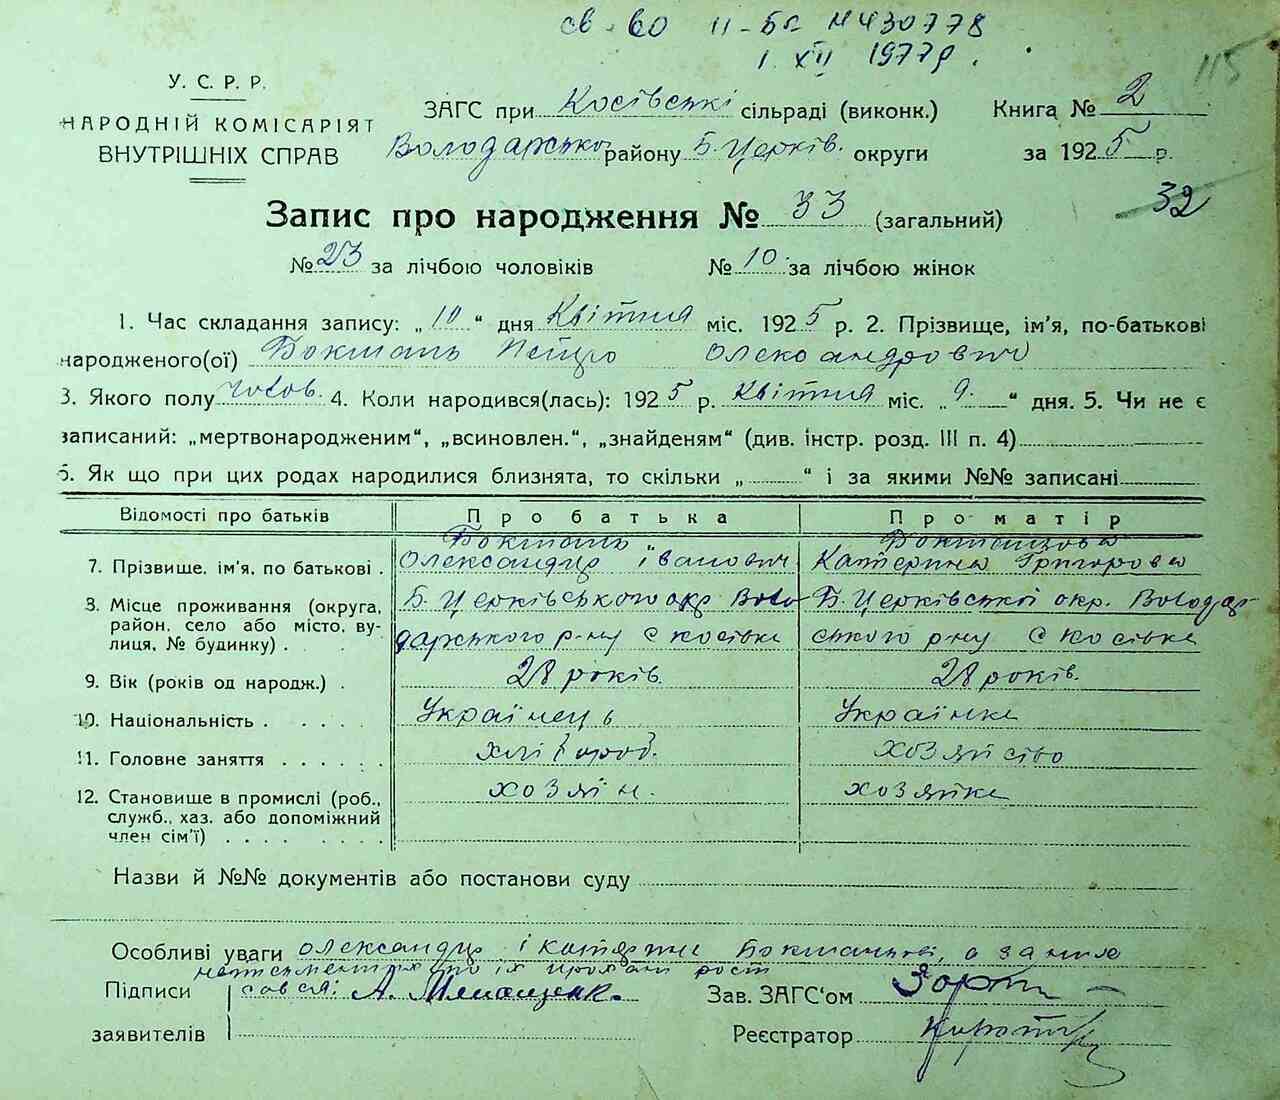 св-во II-БК №430778
1 XII 1977р.
115
У. С. Р. Р.
НАРОДНІЙ КОМІСАРІЯТ
ВНУТРІШНІХ СПРАВ
ЗАГС при Косівські сільраді (виконк.) Книга № 2
Володарсько району Б. Церків. округи за 1925 р.
32
Запис про народження № 33 (загальний)
№ 23 за лічбою чоловіків № 10 за лічбою жінок
1. Час складання запису: „ 10 “ дня Квітня міс. 1925 р. 2. Прізвище, ім'я, по-батькові
народженого(ої) Бокшань Петро Олександрович
3. Якого полу чолов. 4. Коли народився(лась): 1925 р. Квітня міс. „ 9. “ дня. 5. Чи не є
записаний: „мертвонародженим“, „всиновлен.“, „знайденям“ (див. інстр. розд. III п. 4)
6. Як що при цих родах народилися близнята, то скільки „ “ і за якими №№ записані
Відомості про батьків Про батька Про матір
7. Прізвище, ім'я, по батькові . Бокшань Олександр Іванович
Катерина Григорова
8. Місце проживання (округа, район, село або місто, вулиця, № будинку) . Б. Церківського окр. Володарського р-ну с Косівка
Б. Церківської окр. Володарського р-ну с Косівка
9. Вік (років од народж.) . 28 років. 28 років.
10. Національність . . . . . Українець Українка
11. Головне заняття . . . . . . хлібороб. хозяйство
12. Становище в промислі (роб., служб., хаз. або допоміжний член сім'ї) . . . . . . . хозяїн. хозяйка
Назви й №№ документів або постанови суду
Особливі уваги Олександр і Катерина а за них
неписьменних по їх
Підписи заявителів А.
Зав. ЗАГС'ом
Реєстратор